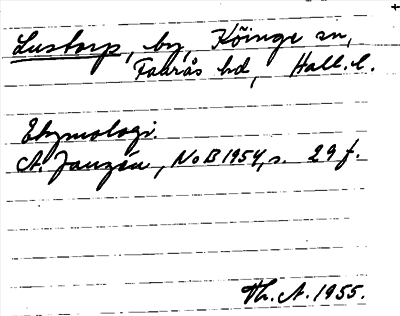 Lustorp, by, Köinge sn,
Faurås hd, Hall. l.
Etymologi.
A. Janzén, NoB 1954, s. 29 f.
Th. A. 1955.